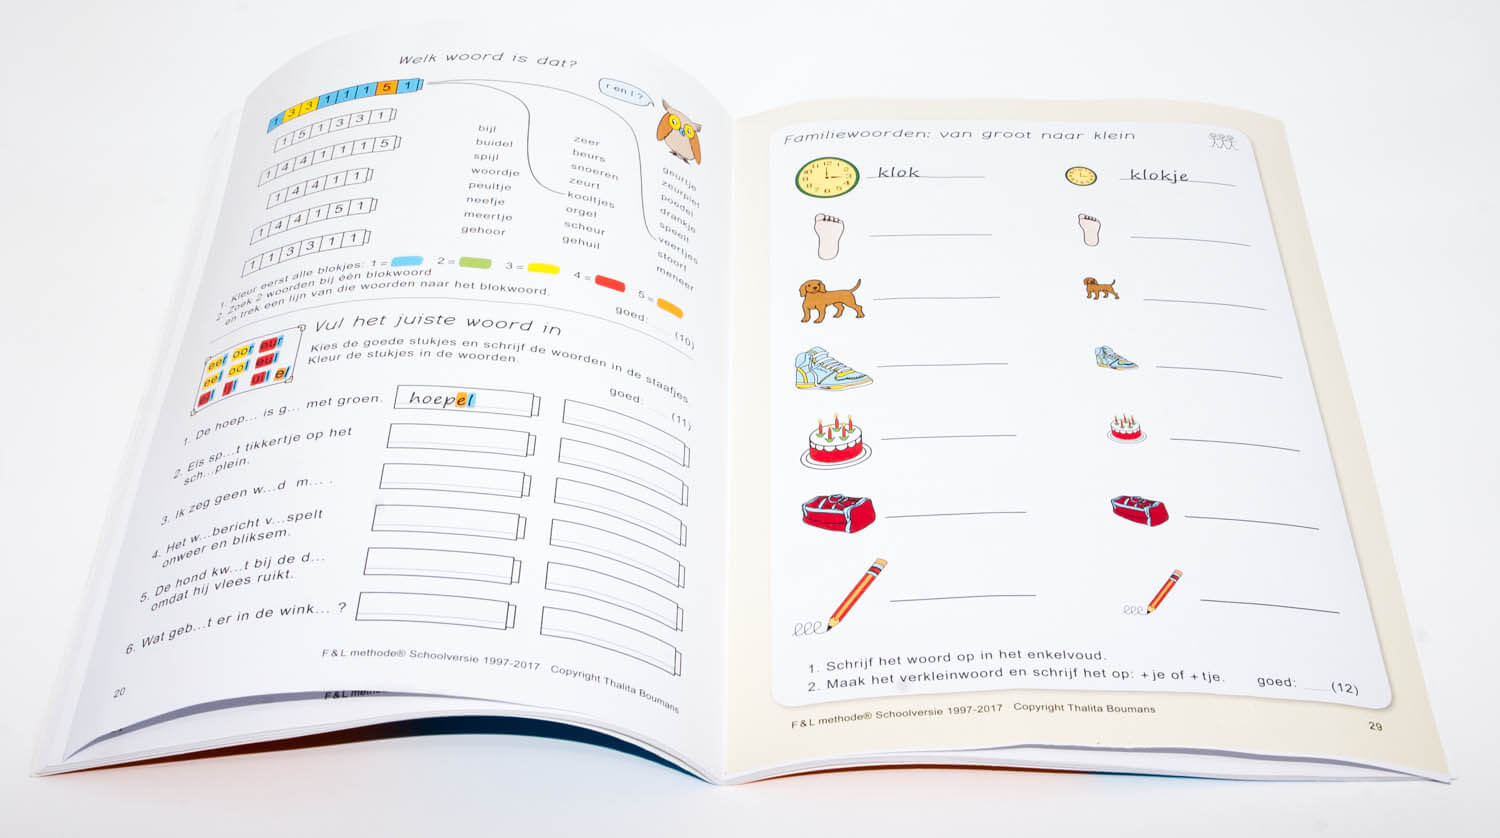 Welk woord is dat?
r en l ?
1 3 3 1 1 1 5 1
1 5 1 3 3 1
1 4 4 1 1 1 5
1 4 4 1 1
1 4 4 1 5 1
1 1 3 3 1 1
bijl
buidel
spijl
woordje
peultje
neefje
meertje
gehoor
zeer
beurs
snoeren
zeurt
kooltjes
orgel
scheur
gehuil
geurtje
zeurpiet
poedel
drankje
speelt
veertjes
stoort
meneer
1. Kleur eerst alle blokjes: 1 = 2 = 3 = 4 = 5 =
2. Zoek 2 woorden bij één blokwoord
en trek een lijn van die woorden naar het blokwoord.
goed: (10)
Vul het juiste woord in
eer oor eur
eel ool eul
eil jl uil el
Kies de goede stukjes en schrijf de woorden in de staafjes
Kleur de stukjes in de woorden.
goed: (11)
1. De hoep... is g... met groen.
hoepel
2. Els sp...t tikkertje op het
sch...plein.
3. Ik zeg geen w...d m... .
4. Het w...bericht v...spelt
onweer en bliksem.
5. De hond kw...t bij de d...
omdat hij vlees ruikt.
6. Wat geb...t er in de wink... ?
F & L methode® Schoolversie 1997-2017 Copyright Thalita Boumans
20
F & L
Familiewoorden: van groot naar klein
klok
klokje
1. Schrijf het woord op in het enkelvoud.
2. Maak het verkleinwoord en schrijf het op: + je of + tje. goed: (12)
F & L methode® Schoolversie 1997-2017 Copyright Thalita Boumans
29